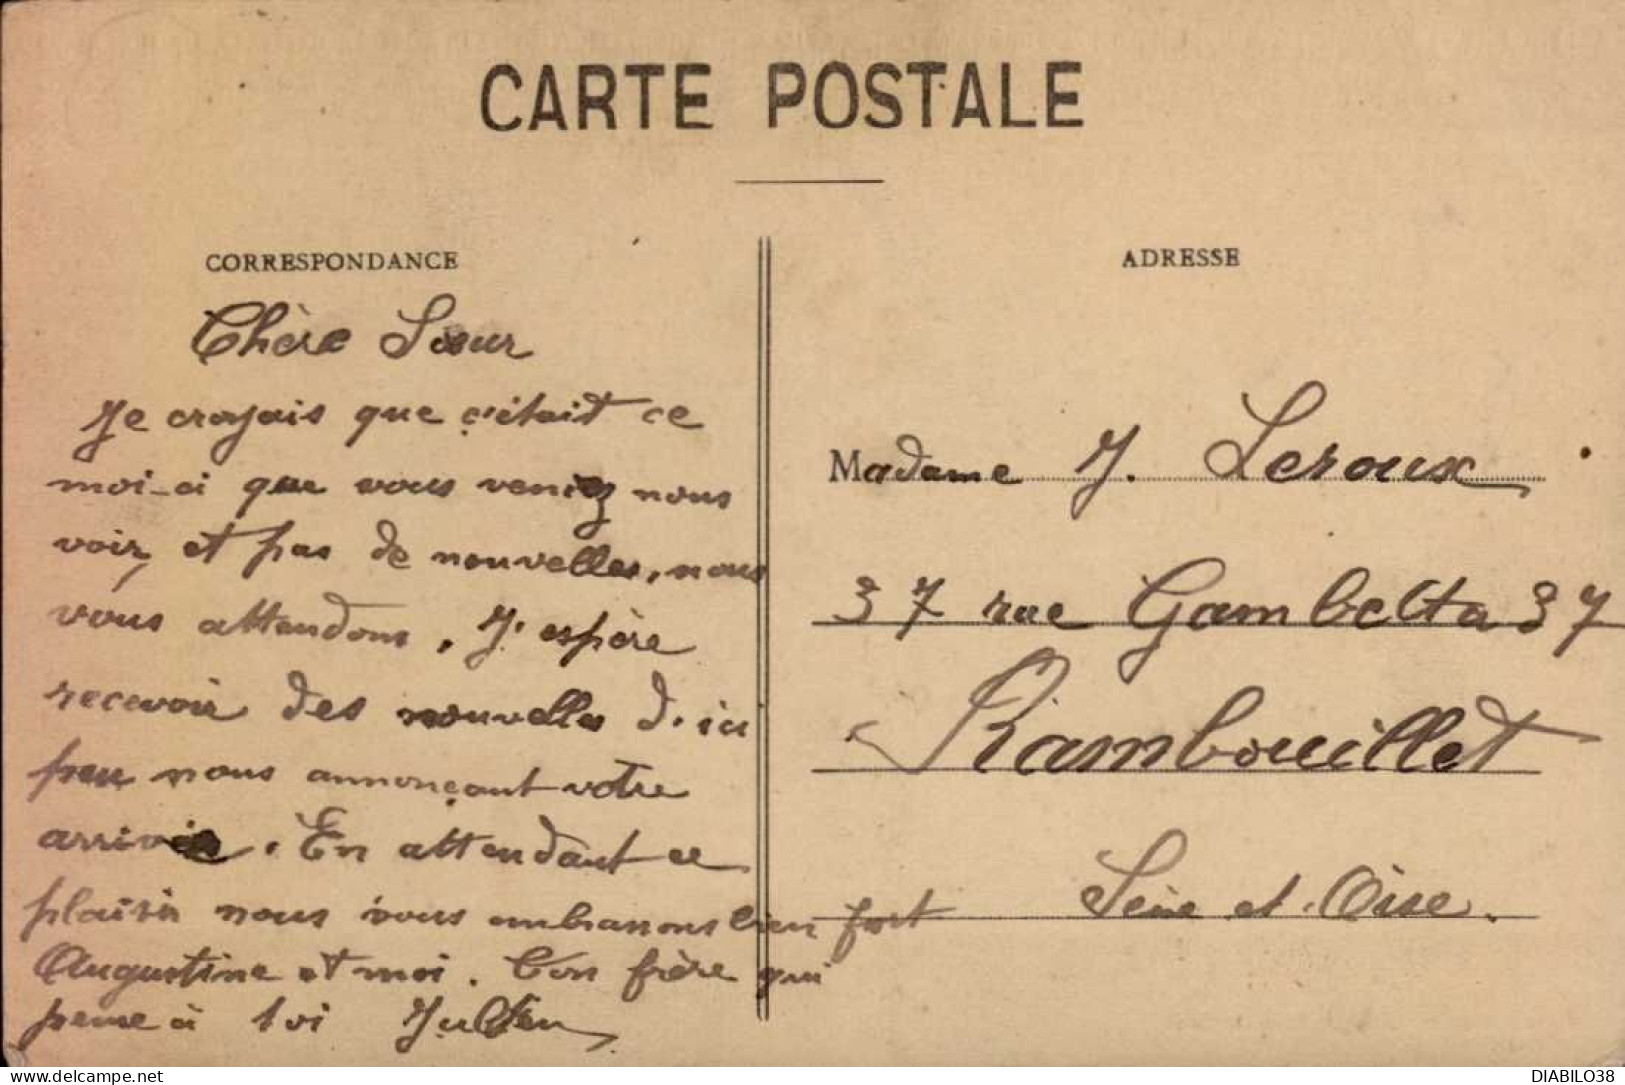 CARTE POSTALE
CORRESPONDANCE
Chère Sœur
Je croyais que c'était ce
moi-ci que vous veniez nous
voir, et pas de nouvelles, nous
vous attendons, J'espère
recevoir des nouvelles d'ici
peu nous annonçant votre
arrivée. En attendant ce
plaisir nous vous embrassons bien fort
Augustine et moi. Ton frère qui
pense à toi Julien
ADRESSE
Madame J. Leroux
37 rue Gambetta 37
à Rambouillet
Seine et Oise.
delcampe.net
DIABILO38